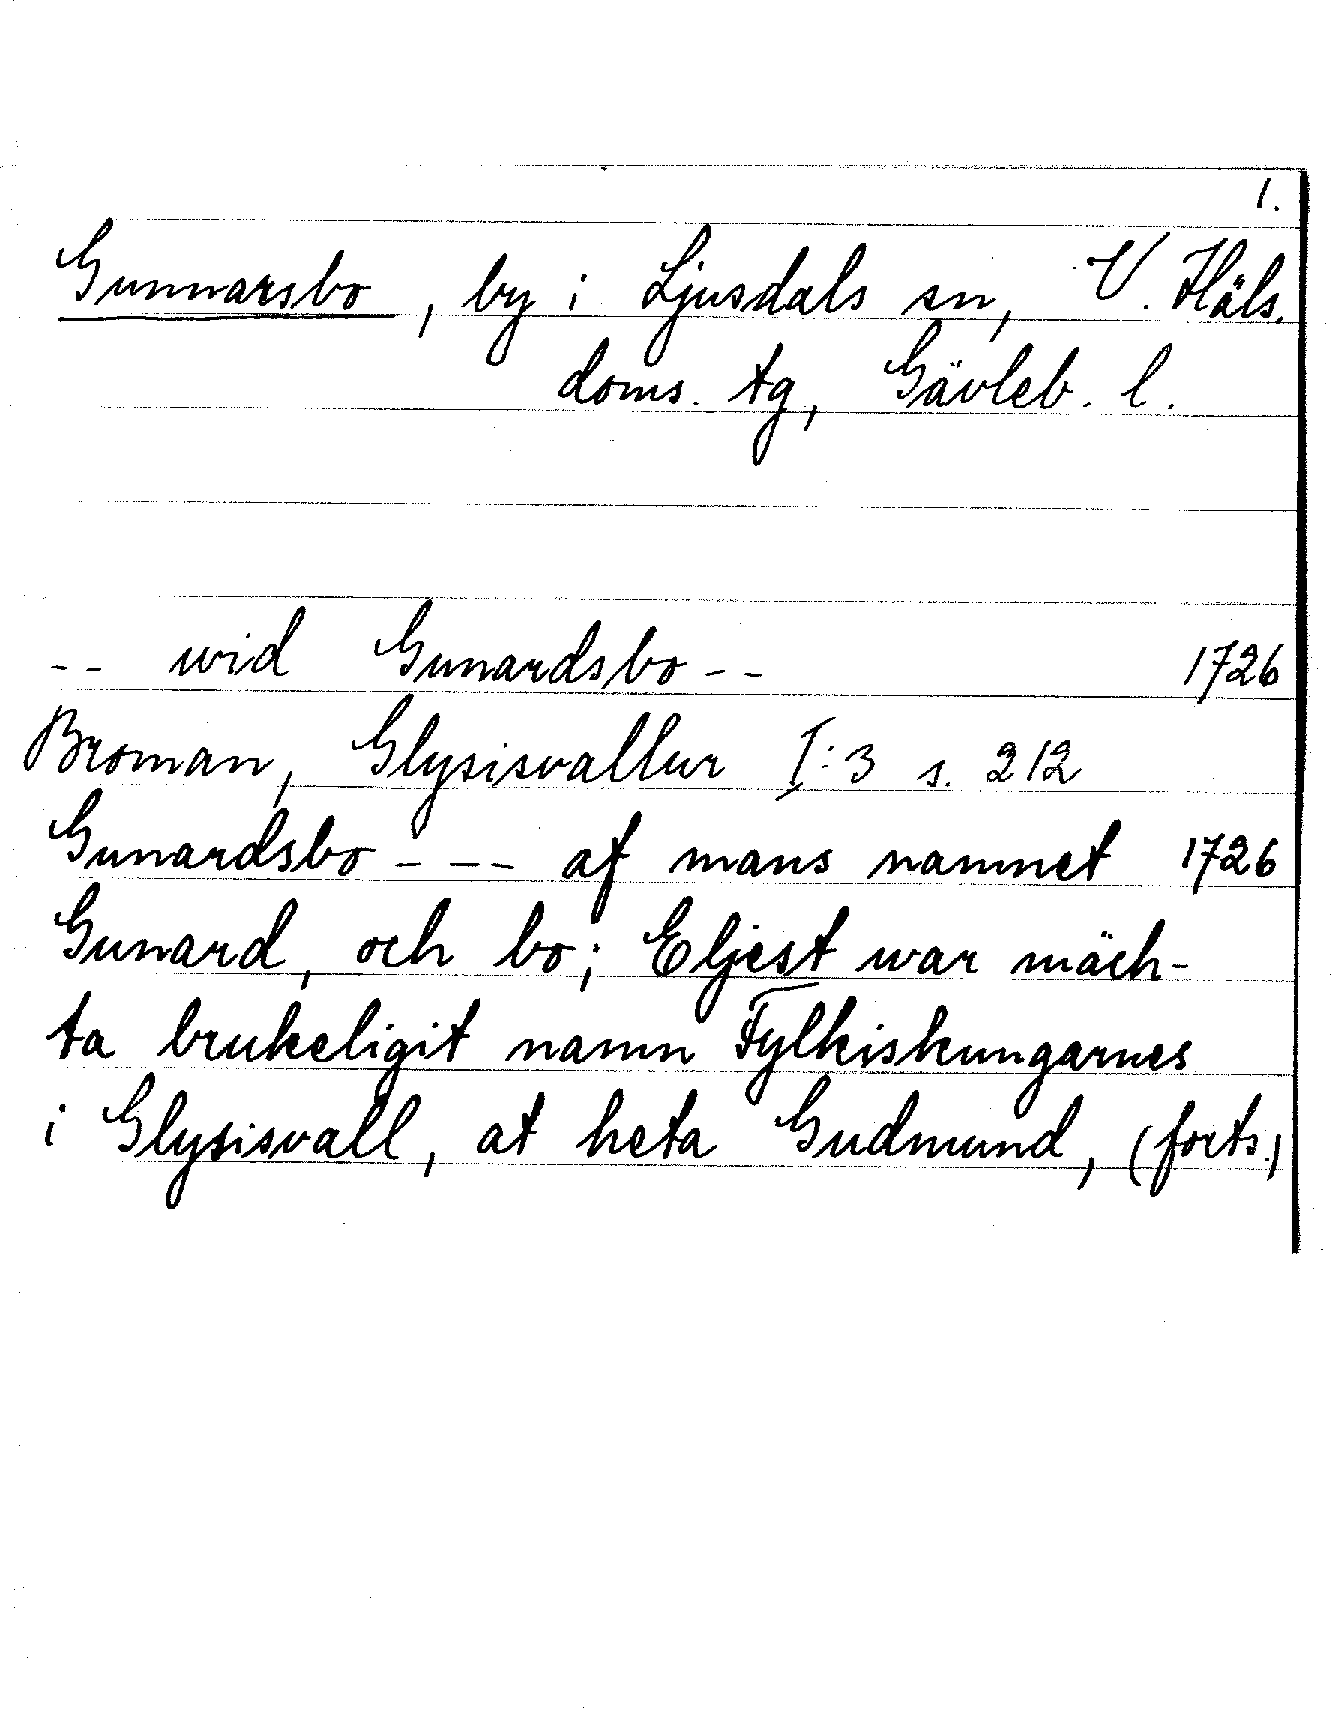 1.
Gunnarsbo, by i Ljusdals sn, V. Häls.
doms. tg, Gävleb. l.
-- wid Gunardsbo -- 1726
Broman, Glysisvallur I:3 s. 212
Gunardsbo --- af mans namnet 1726
Gunard, och bo; Eljest war mäch-
ta brukeligit namn Fylkiskungarnes
i Glysisvall, at heta Gudmund, (forts.)